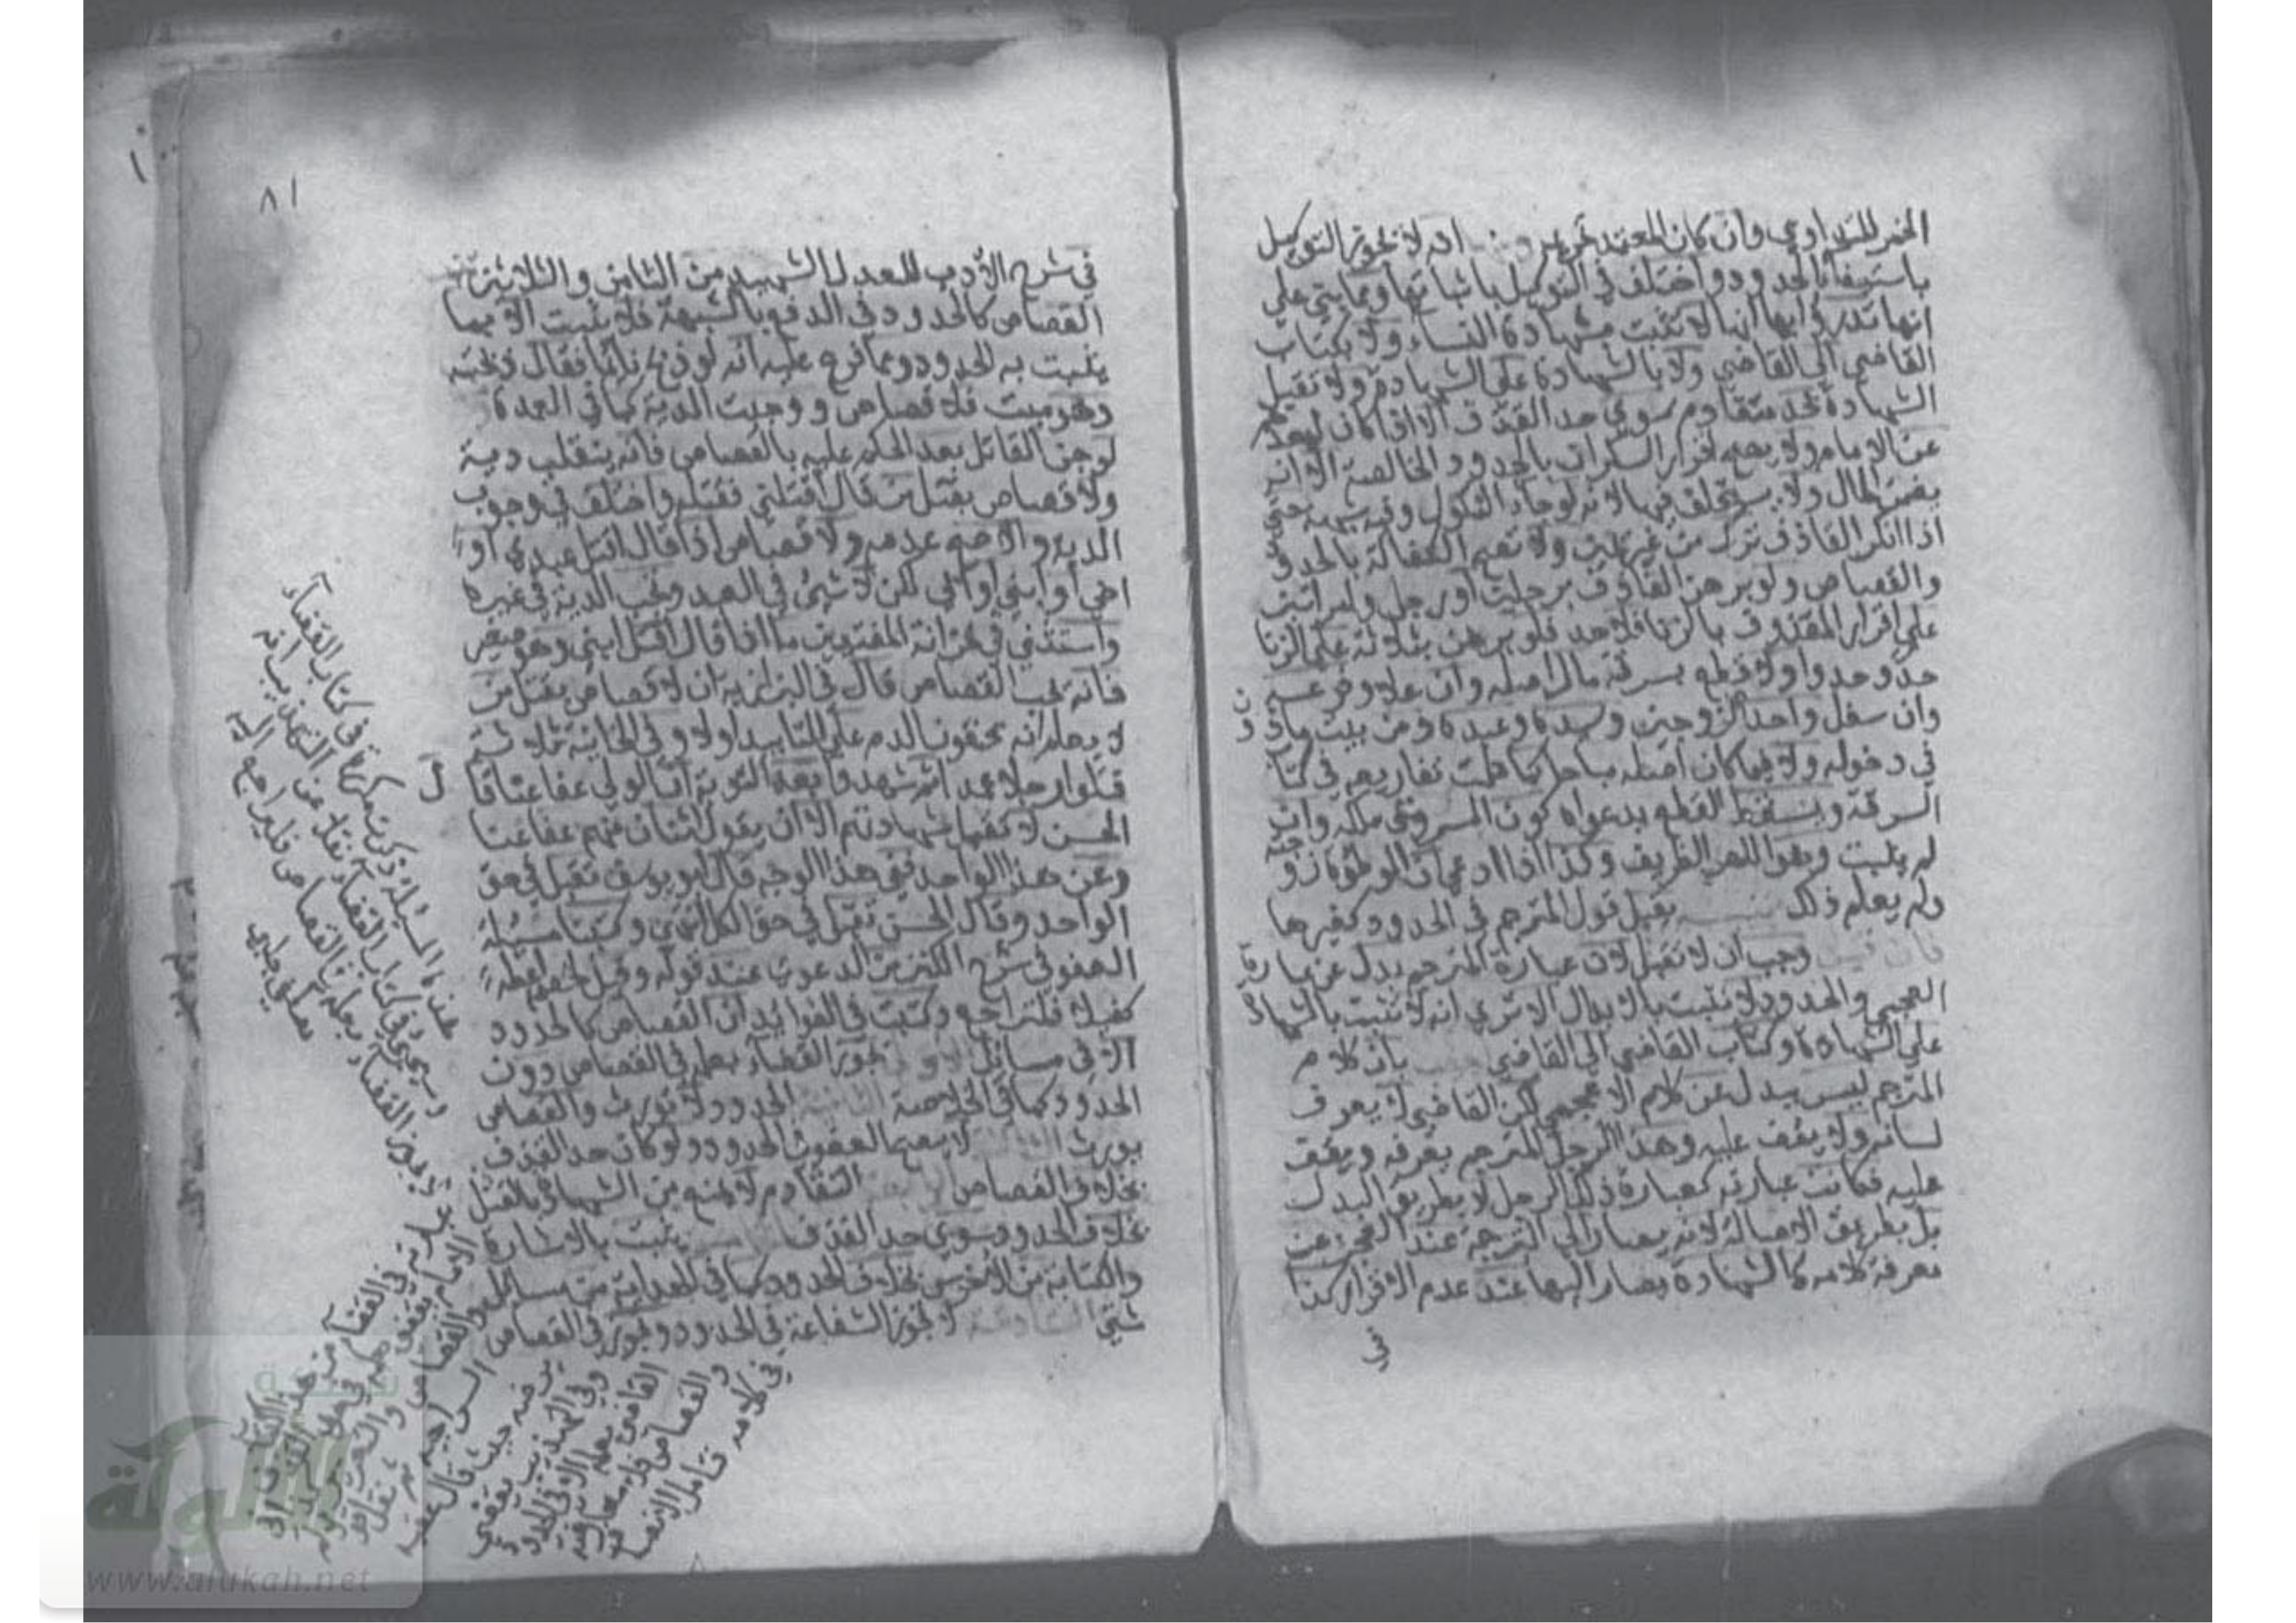 الخمر للتداوي وان كان المعتمد تحريمه انه لا يجوز التوكيل
باستيفاء الحدود واختلف في التوكيل باثباتها ومما يبتني على
انها تدرؤ بها انها لا تثبت بشهادة النساء ولا بكتاب
القاضي الى القاضي ولا بالشهادة على الشهادة ولا تقبل
الشهادة بحد متقادم سوى حد القذف الا اذا كان لبعدهم
عن الامام ولا يصح اقرار السكران بالحدود الخالصة الا انه
يضمن المال ولا يستحلف فيها لانه لرجاء النكول وفيه شبهة حتى
اذا انكر القاذف ترك من غير يمين ولا تصح الكفالة بالحدود
والقصاص ولو برهن القاذف برجلين او رجل وامراتين
على اقرار المقذوف بالزنا فلا حد فلو برهن بثلاثة على الزنا
حد وحدوا ولا قطع بسرقة مال اصله وان علا وفرعه
وان سفل واحد الزوجين وسيده وعبده ومن بيت ماذون
في دخوله ولا فيما كان اصله مباحا كما علمت تفاريعه في كتاب
السرقة ويسقط القطع بدعواه كون المسروق ملكه وان
لم يثبت وهو اللص الظريف وكذا اذا ادعى ان الموطؤة زوجته
ولم يعلم ذلك يقبل قول المترجم في الحدود كغيرها
فان قيل وجب ان لا تقبل لان عبارة المترجم بدل عن عبارة
العجمي والحدود لا تثبت بالابدال الا ترى انه لا تثبت بالشهادة
على الشهادة وكتاب القاضي الى القاضي بان كلام
المترجم ليس ببدل عن كلام الاعجمي لكن القاضي لا يعرف
لسانه ولا يقف عليه وهذا الرجل المترجم يعرفه ويقف
عليه فكانت عبارته كعبارة ذلك الرجل لا بطريق البدل
بل بطريق الاصالة لانه يصار الى الترجمة عند العجز عن
معرفة كلامه كالشهادة يصار اليها عند عدم الاقرار كذا
في
٨١
في شرح الادب للصدر الشهيد من الثامن والثلاثين
القصاص كالحدود في الدفع بالشبهة فلا يثبت الا بما
يثبت به الحدود ومما فرع عليه انه لو ذبح نائما فقال ذبحته
وهو ميت فلا قصاص ووجبت الدية كما في العمدة
لو جن القاتل بعد الحكم عليه بالقصاص فانه ينقلب دية
ولا قصاص بقتل من قال اقتلني فقتله واختلف في وجوب
الدية والاصح عدمه ولا قصاص اذا قال اقتل عبدي او
اخي او ابني او ابي لكن لا شيء في العبد وتجب الدية في غيره
واستثنى في خزانة المفتيين ما اذا قال اقتل ابني وهو صغير
فانه يجب القصاص قال في البزازية ان لا قصاص بقتل من
لا يعلم انه محقون الدم على التابيد اولا وفي الخانية ثلاثة
قتلوا رجلا عمدا ثم شهدوا بعد التوبة ان الولي عفا عنا قال
الحسن لا تقبل شهادتهم الا ان يقول اثنان منهم عفا عنا
وعن هذا الواحد ففي هذا الوجه قال ابو يوسف تقبل في حق
الواحد وقال الحسن تقبل في حق الكل انتهى وكتبنا مسئلة
العفو في شرح الكنز من الدعوى عند قوله وقيل لخصمه اعطه
كفيلا فلتراجع وكتبت في الفوائد ان القصاص كالحدود
الا في مسائل الاولى يجوز القضاء بعلمه في القصاص دون
الحدود كما في الخلاصة الثانية الحدود لا تورث والقصاص
يورث الثالثة لا يصح العفو في الحدود ولو كان حد القذف
بخلاف القصاص الرابعة التقادم لا يمنع من الشهادة بالقتل
بخلاف الحدود سوى حد القذف يثبت بالاشارة
والكتابة من الاخرس بخلاف الحدود كما في الهداية من مسائل
شتى السادسة لا تجوز الشفاعة في الحدود وتجوز في القصاص
هذه المسئلة ذكرت مكررة في كتاب القضاء
وسيجيء في كتاب القضاء نقلا عن التهذيب انه
لا يجوز القضاء بعلمه في القصاص فليراجع اليه
مصطفى جلبي
www.alukah.net